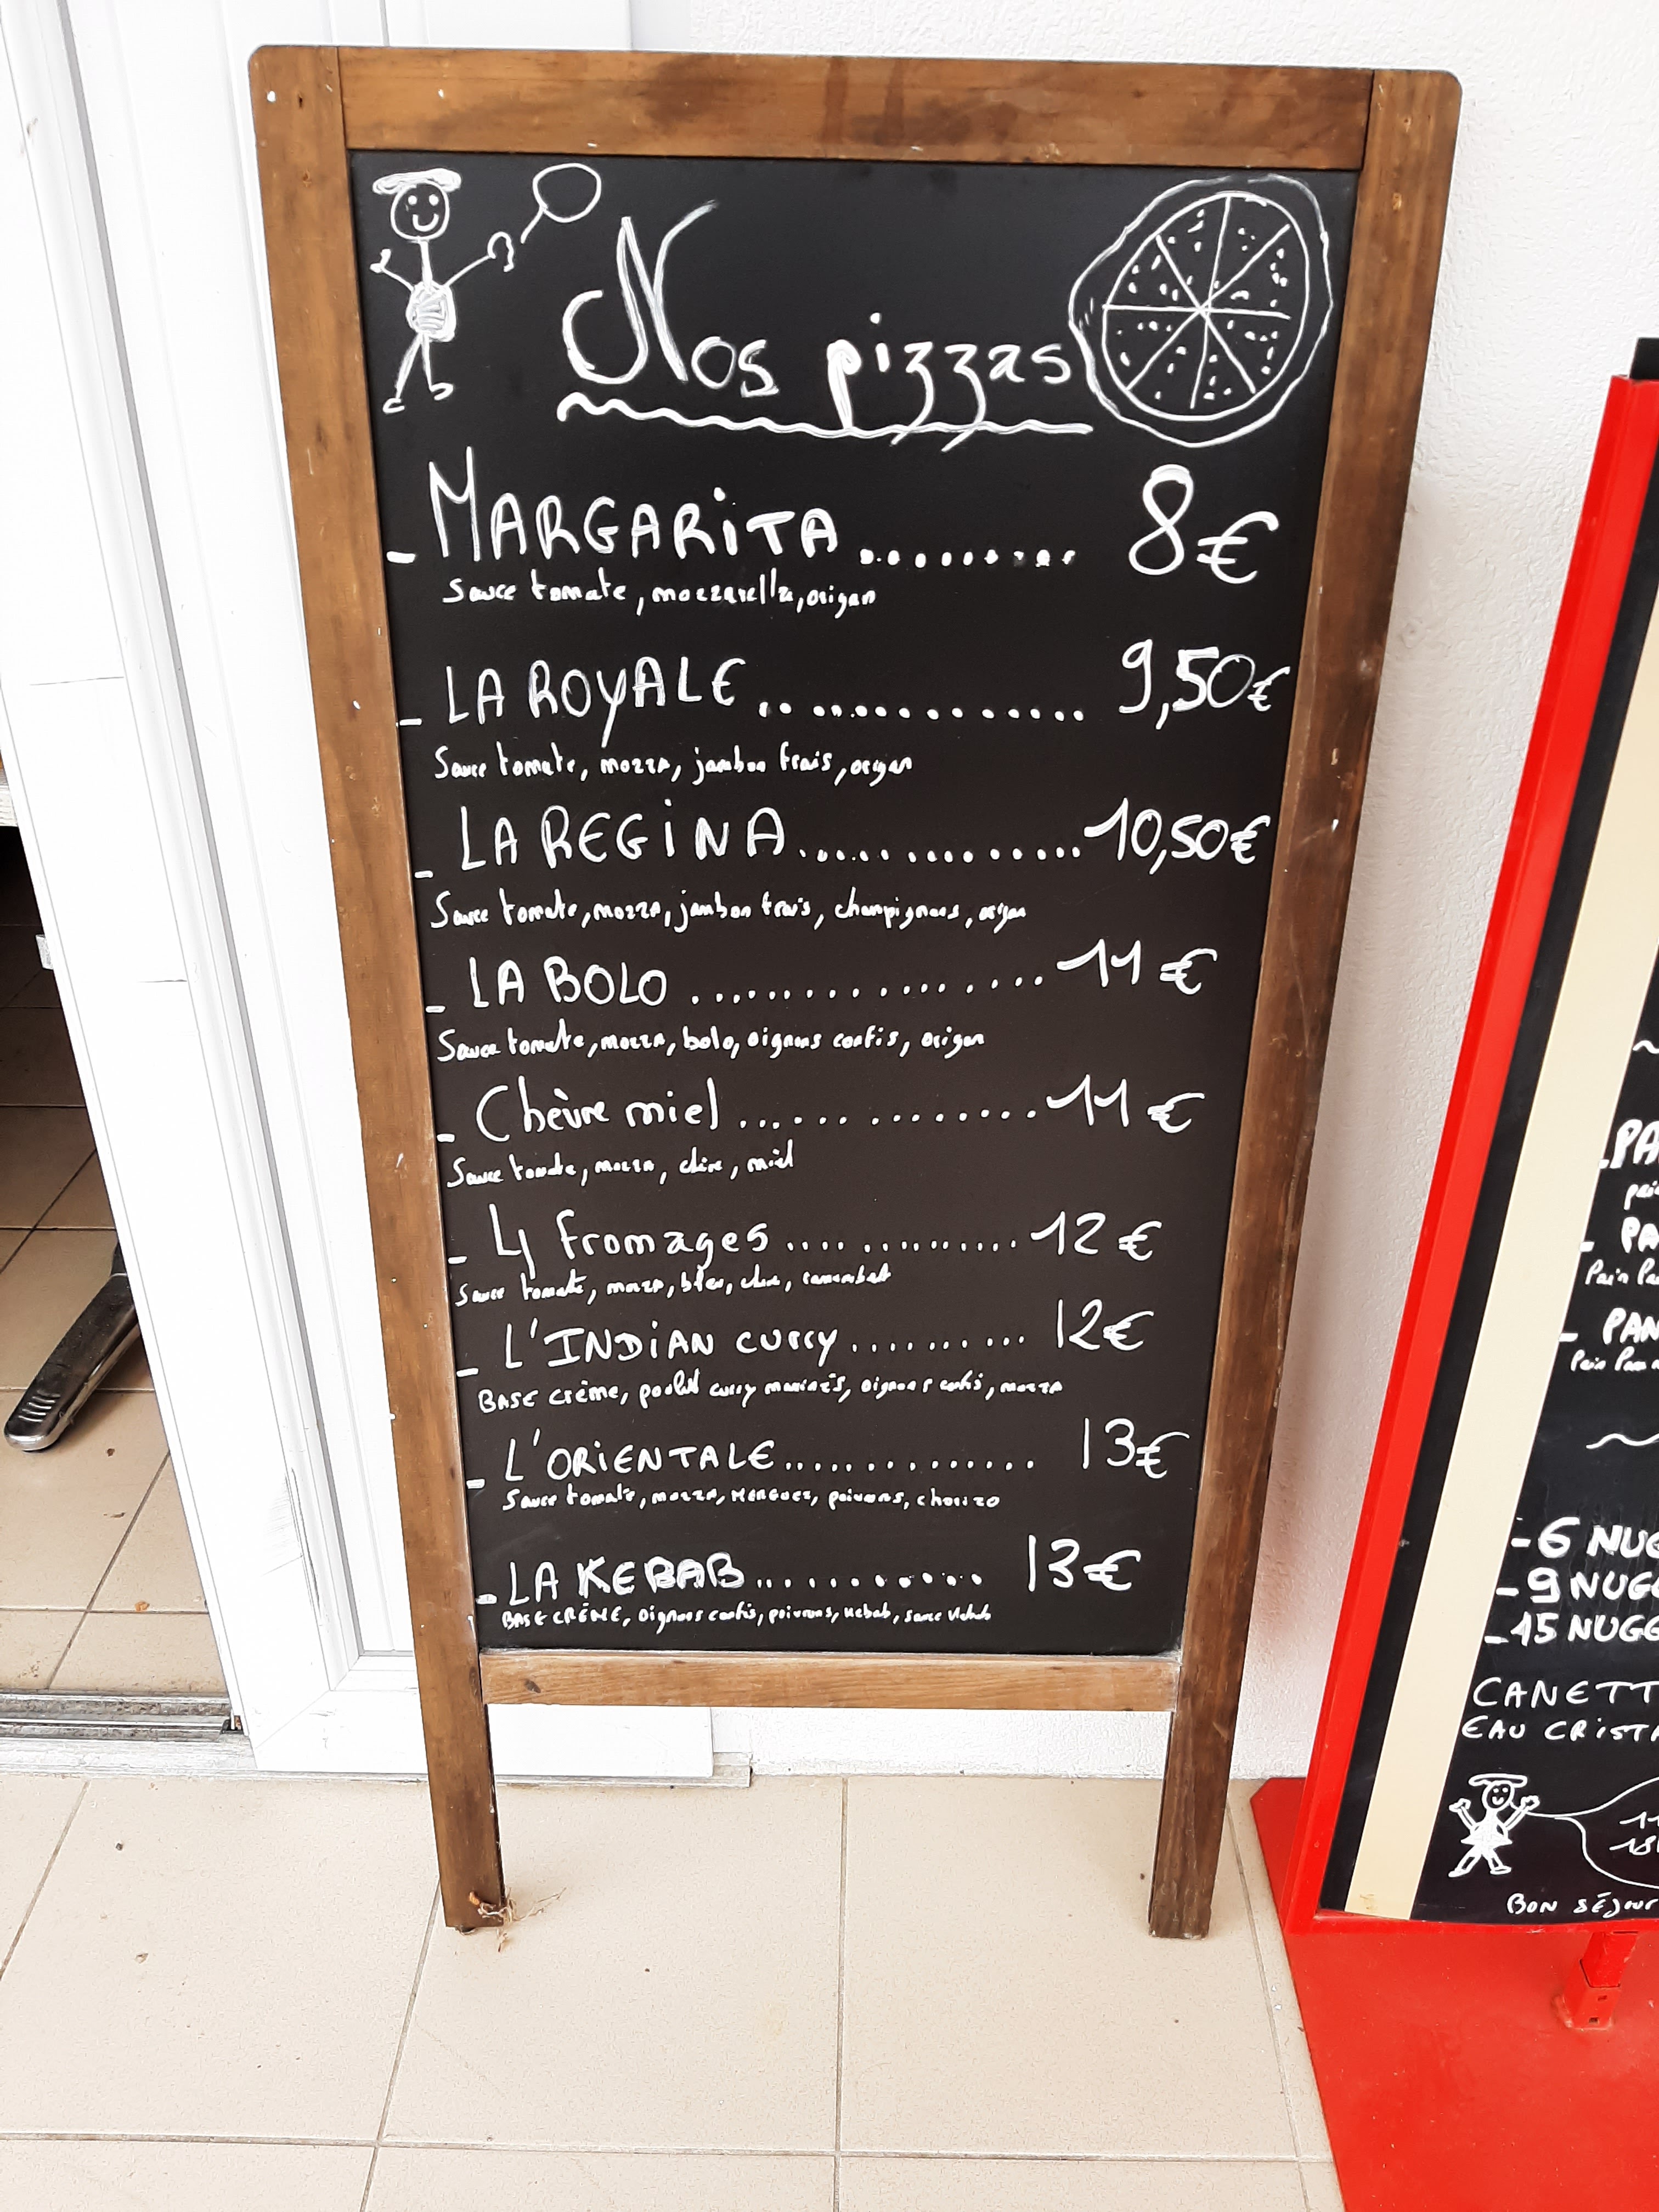 Nos pizzas
- MARGARiTA ......... 8€
Sauce tomate, mozzarella, origan
- LA ROYALE .............. 9,50€
Sauce tomate, mozza, jambon frais, origan
- LA REGiNA .............. 10,50€
Sauce tomate, mozza, jambon frais, champignons, origan
- LA BOLO ................ 11€
Sauce tomate, mozza, bolo, oignons confis, origan
- Chèvre miel .............. 11€
Sauce tomate, mozza, chèvre, miel
- 4 fromages ............. 12€
Sauce tomate, mozza, bleu, chèvre, camembert
- L'INDiAN curry .......... 12€
BASE crème, poulet curry marinés, oignons confis, mozza
- L'ORiENTALE .............. 13€
Sauce tomate, mozza, MERGUEZ, poivrons, chorizo
- LA KEBAB ........... 13€
BASE CRÈME, oignons confis, poivrons, kebab, sauce
- 6 NUG
- 9 NUGG
- 15 NUGG
CANETT
EAU CRiSTA
BON SÉJOUR